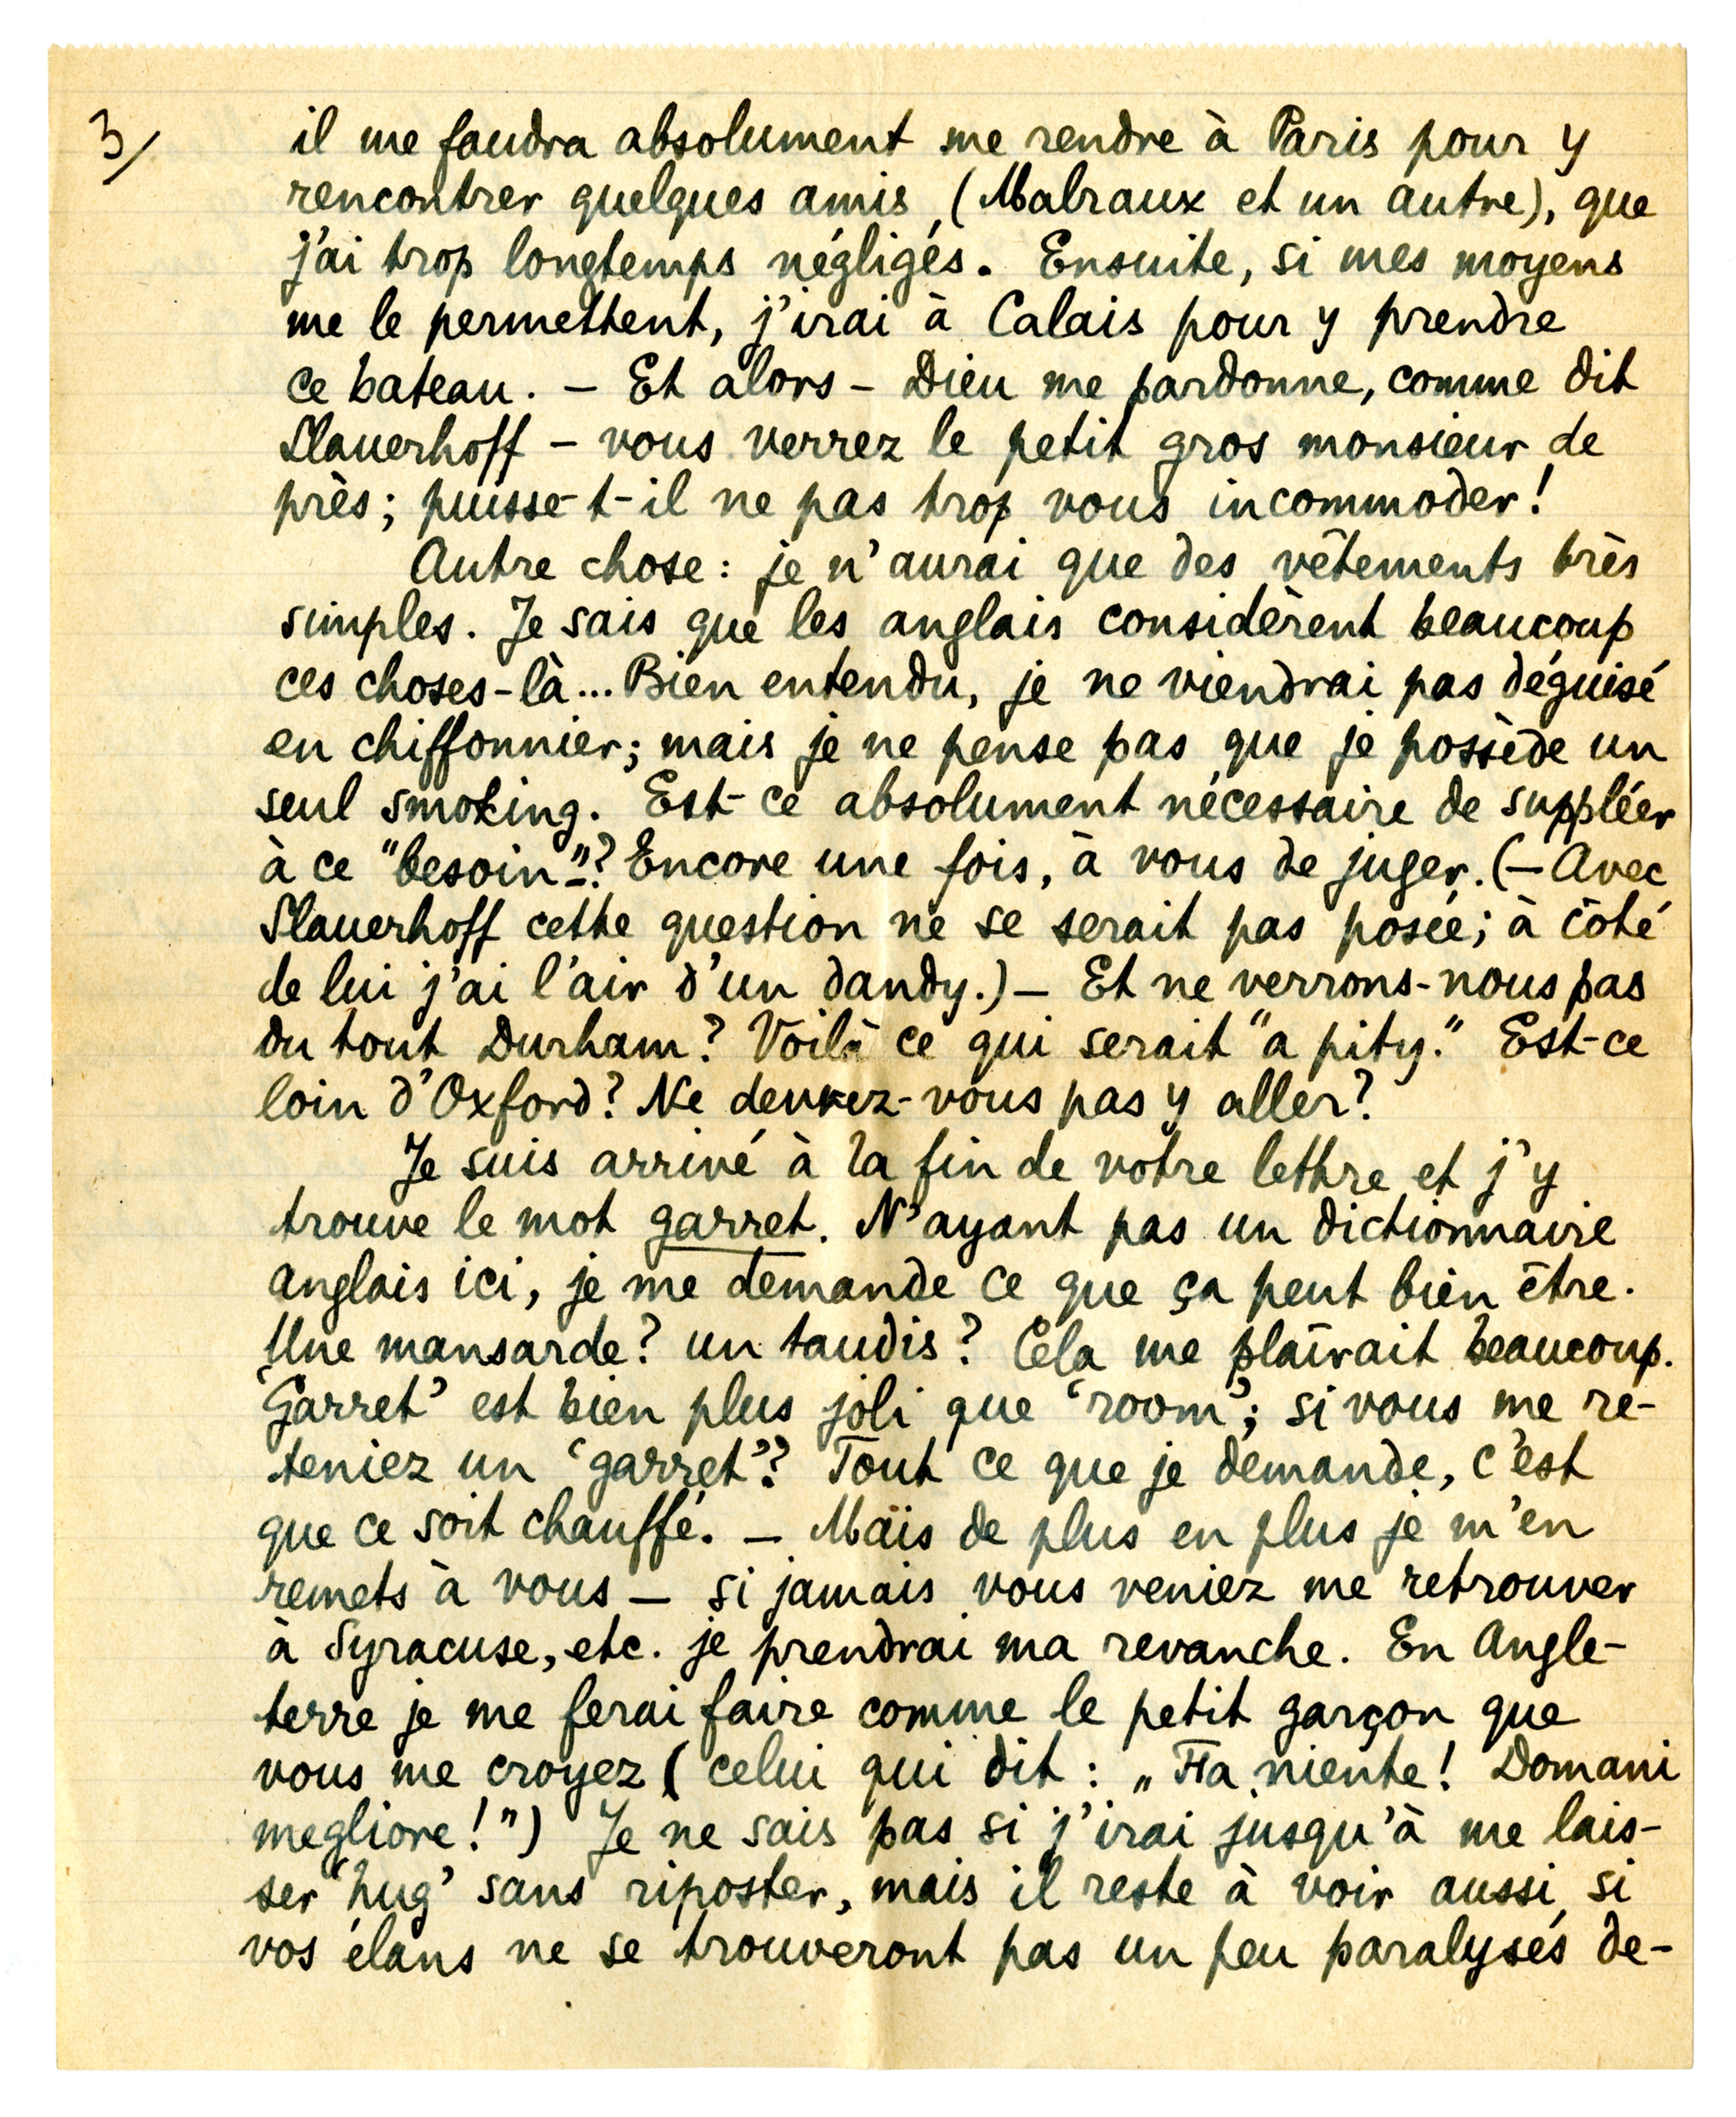 3/
il me faudra absolument me rendre à Paris pour y
rencontrer quelques amis, (Malraux et un autre), que
j'ai trop longtemps négligés. Ensuite, si mes moyens
me le permettent, j'irai à Calais pour y prendre
ce bateau. – Et alors – Dieu me pardonne, comme dit
Slauerhoff – vous verrez le petit gros monsieur de
près; puisse-t-il ne pas trop vous incommoder!
Autre chose: je n'aurai que des vêtements très
simples. Je sais que les anglais considèrent beaucoup
ces choses-là... Bien entendu, je ne viendrai pas déguisé
en chiffonnier; mais je ne pense pas que je possède un
seul smoking. Est-ce absolument nécessaire de suppléer
à ce "besoin"? Encore une fois, à vous de juger. (– Avec
Slauerhoff cette question ne se serait pas posée; à côté
de lui j'ai l'air d'un dandy.) – Et ne verrons-nous pas
du tout Durham? Voilà ce qui serait "a pity." Est-ce
loin d'Oxford? Ne devrez-vous pas y aller?
Je suis arrivé à la fin de votre lettre et j'y
trouve le mot garret. N'ayant pas un dictionnaire
anglais ici, je me demande ce que ça peut bien être.
Une mansarde? un taudis? Cela me plaîrait beaucoup.
'Garret' est bien plus joli que 'room'; si vous me re-
teniez un 'garret'? Tout ce que je demande, c'est
que ce soit chauffé. – Mais de plus en plus je m'en
remets à vous – si jamais vous veniez me retrouver
à Syracuse, etc. je prendrai ma revanche. En Angle-
terre je me ferai faire comme le petit garçon que
vous me croyez (celui qui dit: „Fa niente! Domani
megliore!") Je ne sais pas si j'irai jusqu'à me lais-
ser 'hug' sans riposter, mais il reste à voir aussi si
vos élans ne se trouveront pas un peu paralysés de-